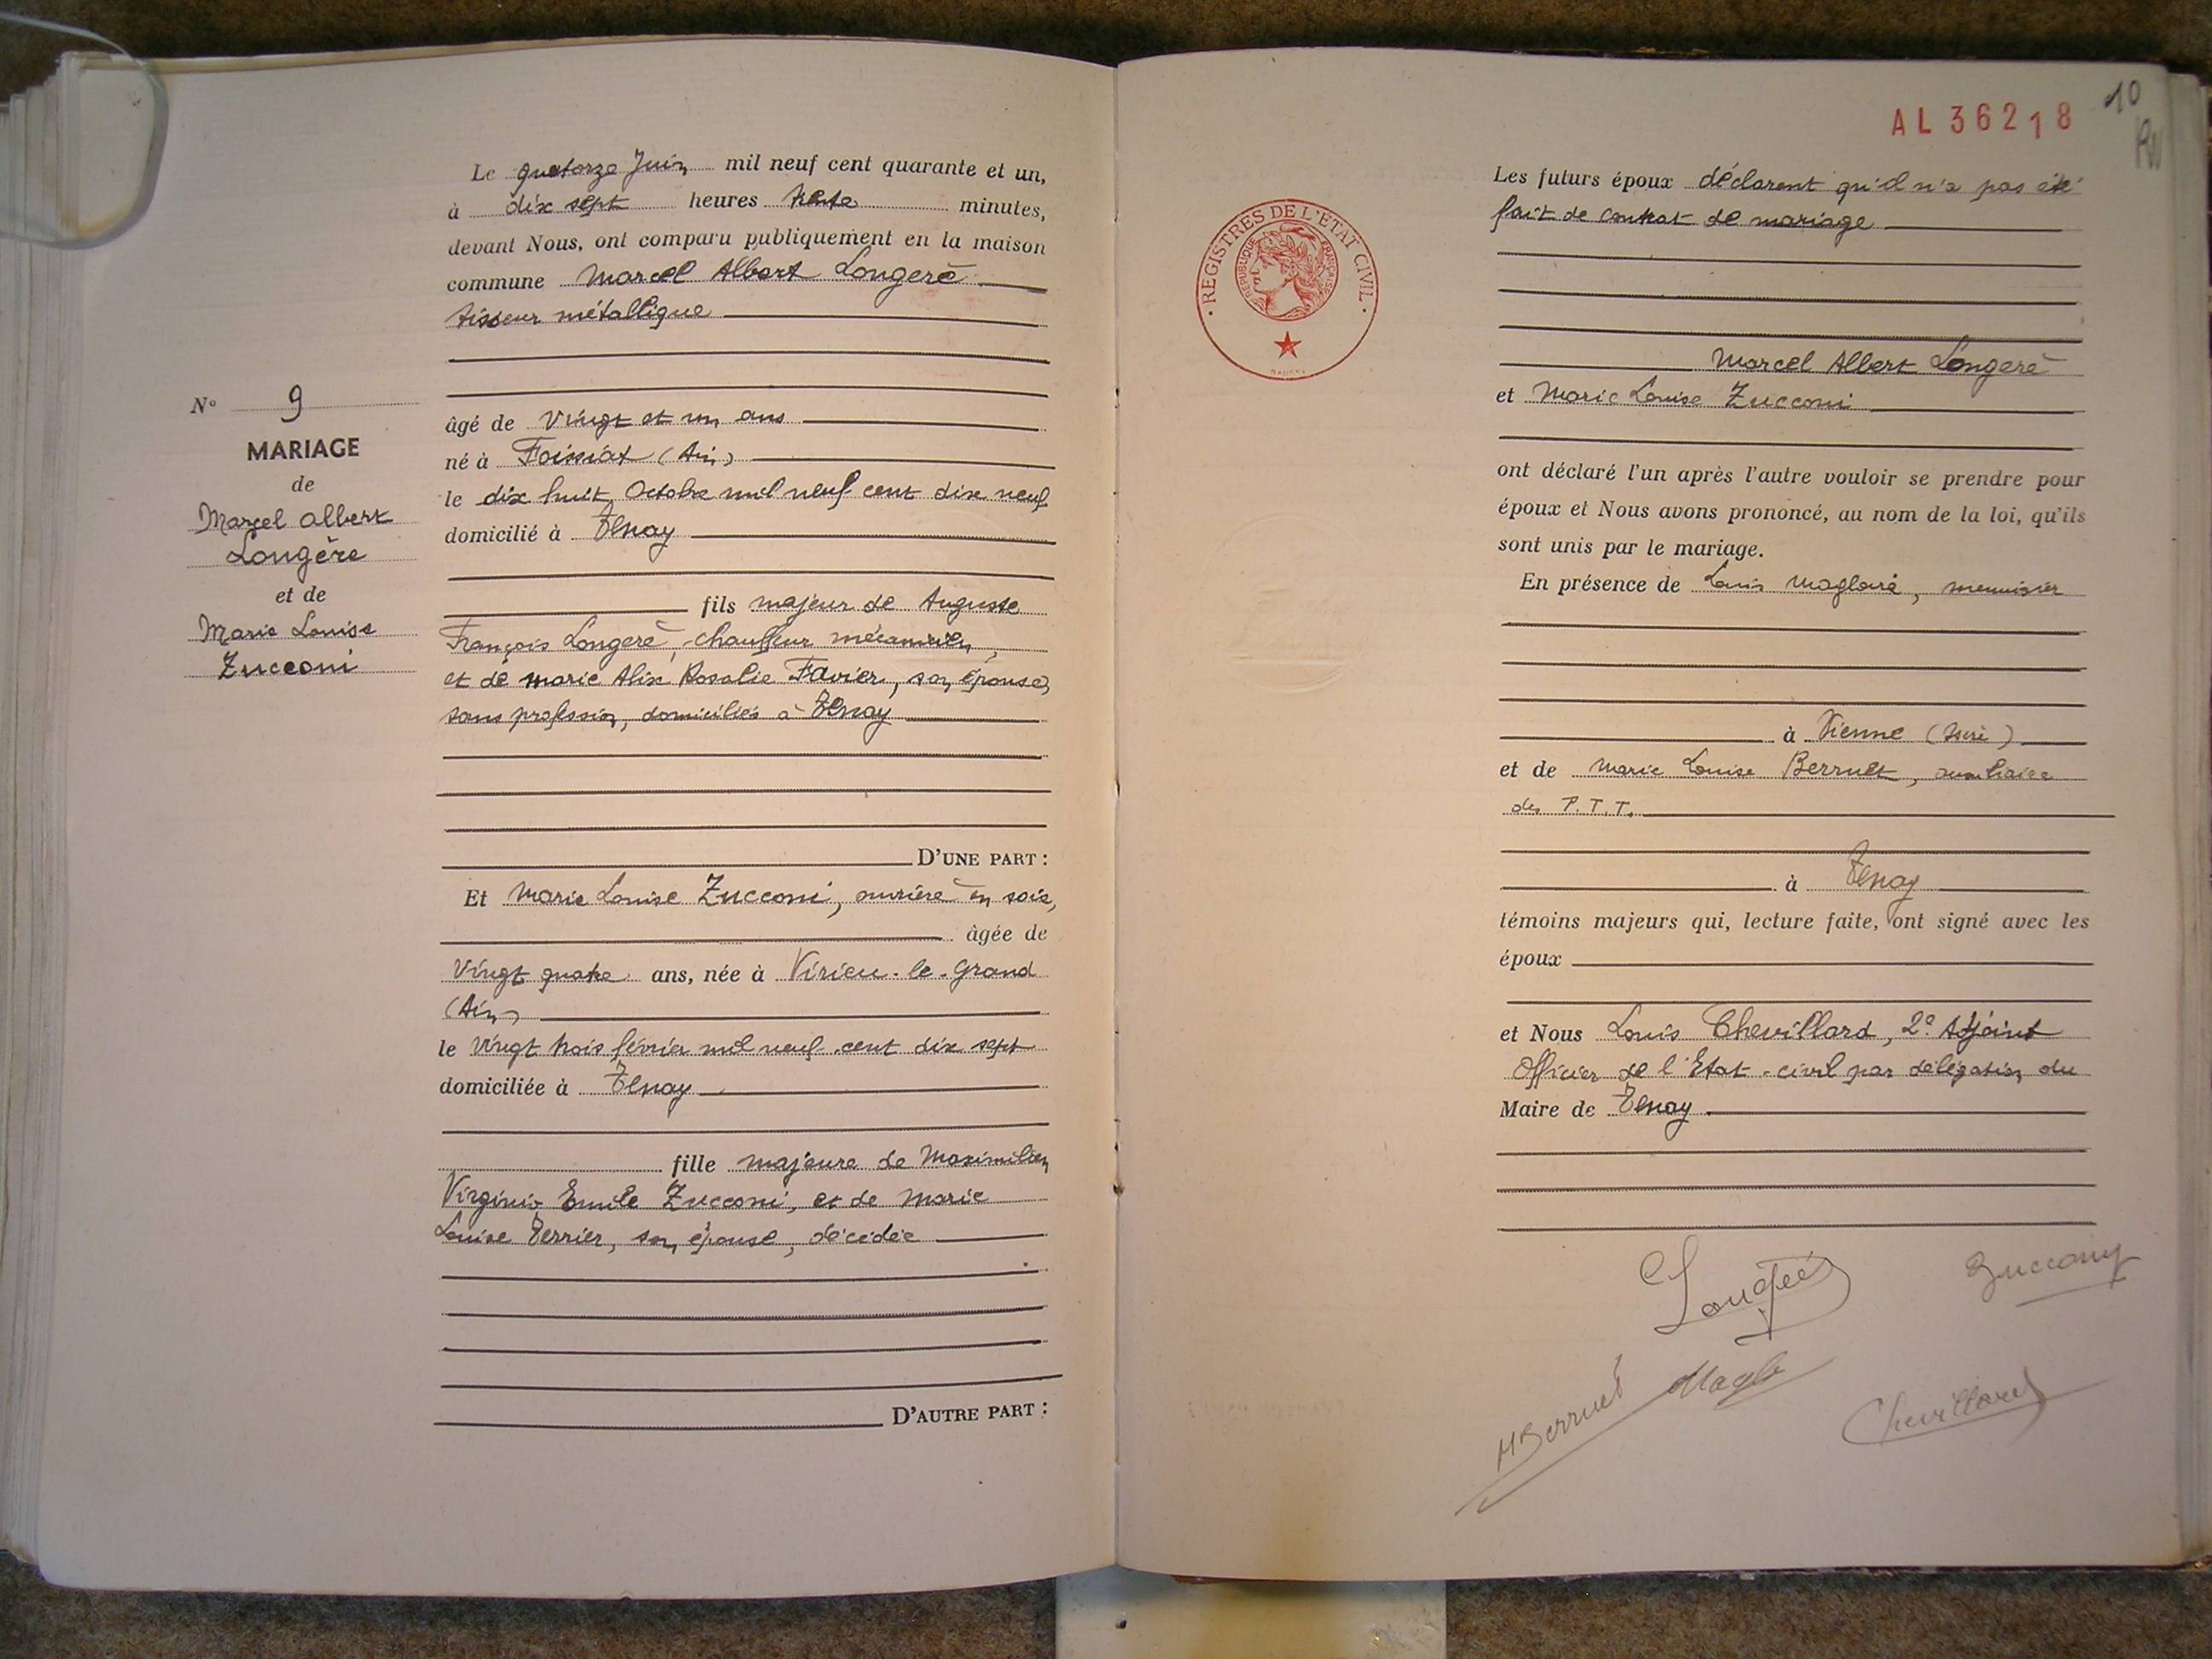 Le quatorze Juin mil neuf cent quarante et un,
à dix sept heures trente minutes,
devant Nous, ont comparu publiquement en la maison
commune Marcel Albert Longère
tisseur métallique
âgé de vingt et un ans
né à Foissiat (Ain)
le dix huit Octobre mil neuf cent dix neuf
domicilié à Tenay
fils majeur de Auguste
François Longère, chauffeur mécanicien,
et de Marie Alix Rosalie Favier, son épouse,
sans profession, domiciliés à Tenay
D'UNE PART :
Et Marie Louise Zucconi, ouvrière en soie,
âgée de
vingt quatre ans, née à Virieu-le-Grand
(Ain)
le vingt trois février mil neuf cent dix sept
domiciliée à Tenay
fille majeure de Maximilien
Virginio Emile Zucconi, et de Marie
Louise Terrier, son épouse, décédée
D'AUTRE PART :
N° 9
MARIAGE
de
Marcel Albert
Longère
et de
Marie Louise
Zucconi
AL 36218
10
REGISTRES DE L'ÉTAT CIVIL
REPUBLIQUE FRANÇAISE
Les futurs époux déclarent qu'il n'a pas été
fait de contrat de mariage
Marcel Albert Longère
et Marie Louise Zucconi
ont déclaré l'un après l'autre vouloir se prendre pour
époux et Nous avons prononcé, au nom de la loi, qu'ils
sont unis par le mariage.
En présence de Louis Magloire, menuisier
à Vienne (Isère)
et de Marie Louise Berruet, auxiliaire
des P.T.T.
à Tenay
témoins majeurs qui, lecture faite, ont signé avec les
époux
et Nous Louis Chevillard, 2e Adjoint
Officier de l'Etat-civil par délégation du
Maire de Tenay.
Longère
Zuccony
MBerruet
Chevillard